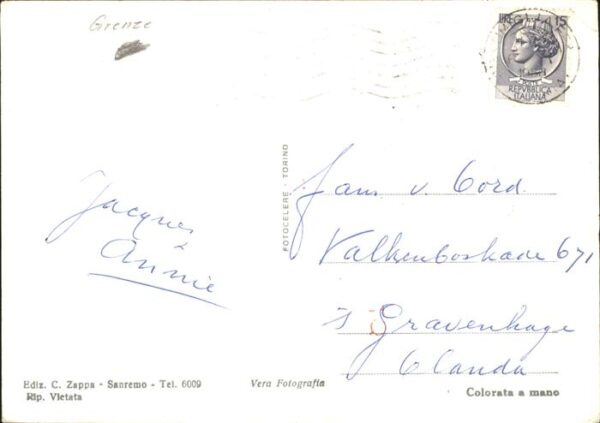 Grenze
LIRE 15
POSTE
REPVBBLICA
ITALIANA
FOTOCELERE - TORINO
Jacques
&
Annie
Fam. v. Cord.
Valkenboskade 671
's Gravenhage
Olanda
Ediz. C. Zappa - Sanremo - Tel. 6009
Rip. Vietata
Vera Fotografia
Colorata a mano